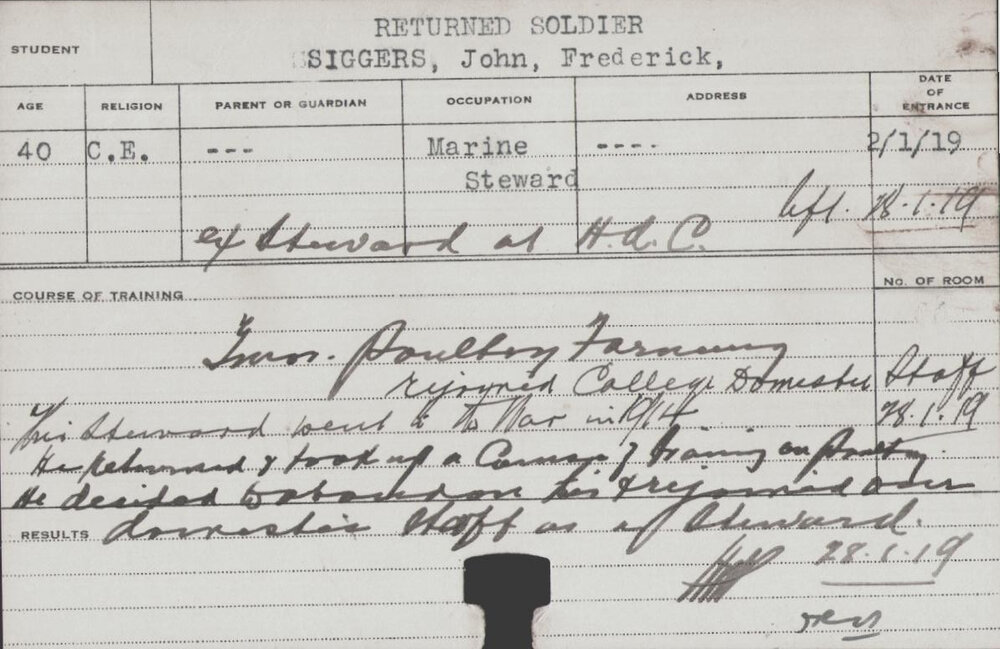 RETURNED SOLDIER
STUDENT
SIGGERS, John, Frederick,
AGE RELIGION PARENT OR GUARDIAN OCCUPATION ADDRESS DATE OF ENTRANCE
40 C.E. --- Marine ---- 2/1/19
Steward
left. 28.1.19
ex Steward at H.A.C.
COURSE OF TRAINING
NO. OF ROOM
Poultry Farming
rejoined College Domestic Staff
28.1.19
This Steward went to the War in 1914
He returned & took up a Course of training on Poultry.
He decided to abandon this & rejoined our
RESULTS
domestic Staff as a Steward.
28.1.19